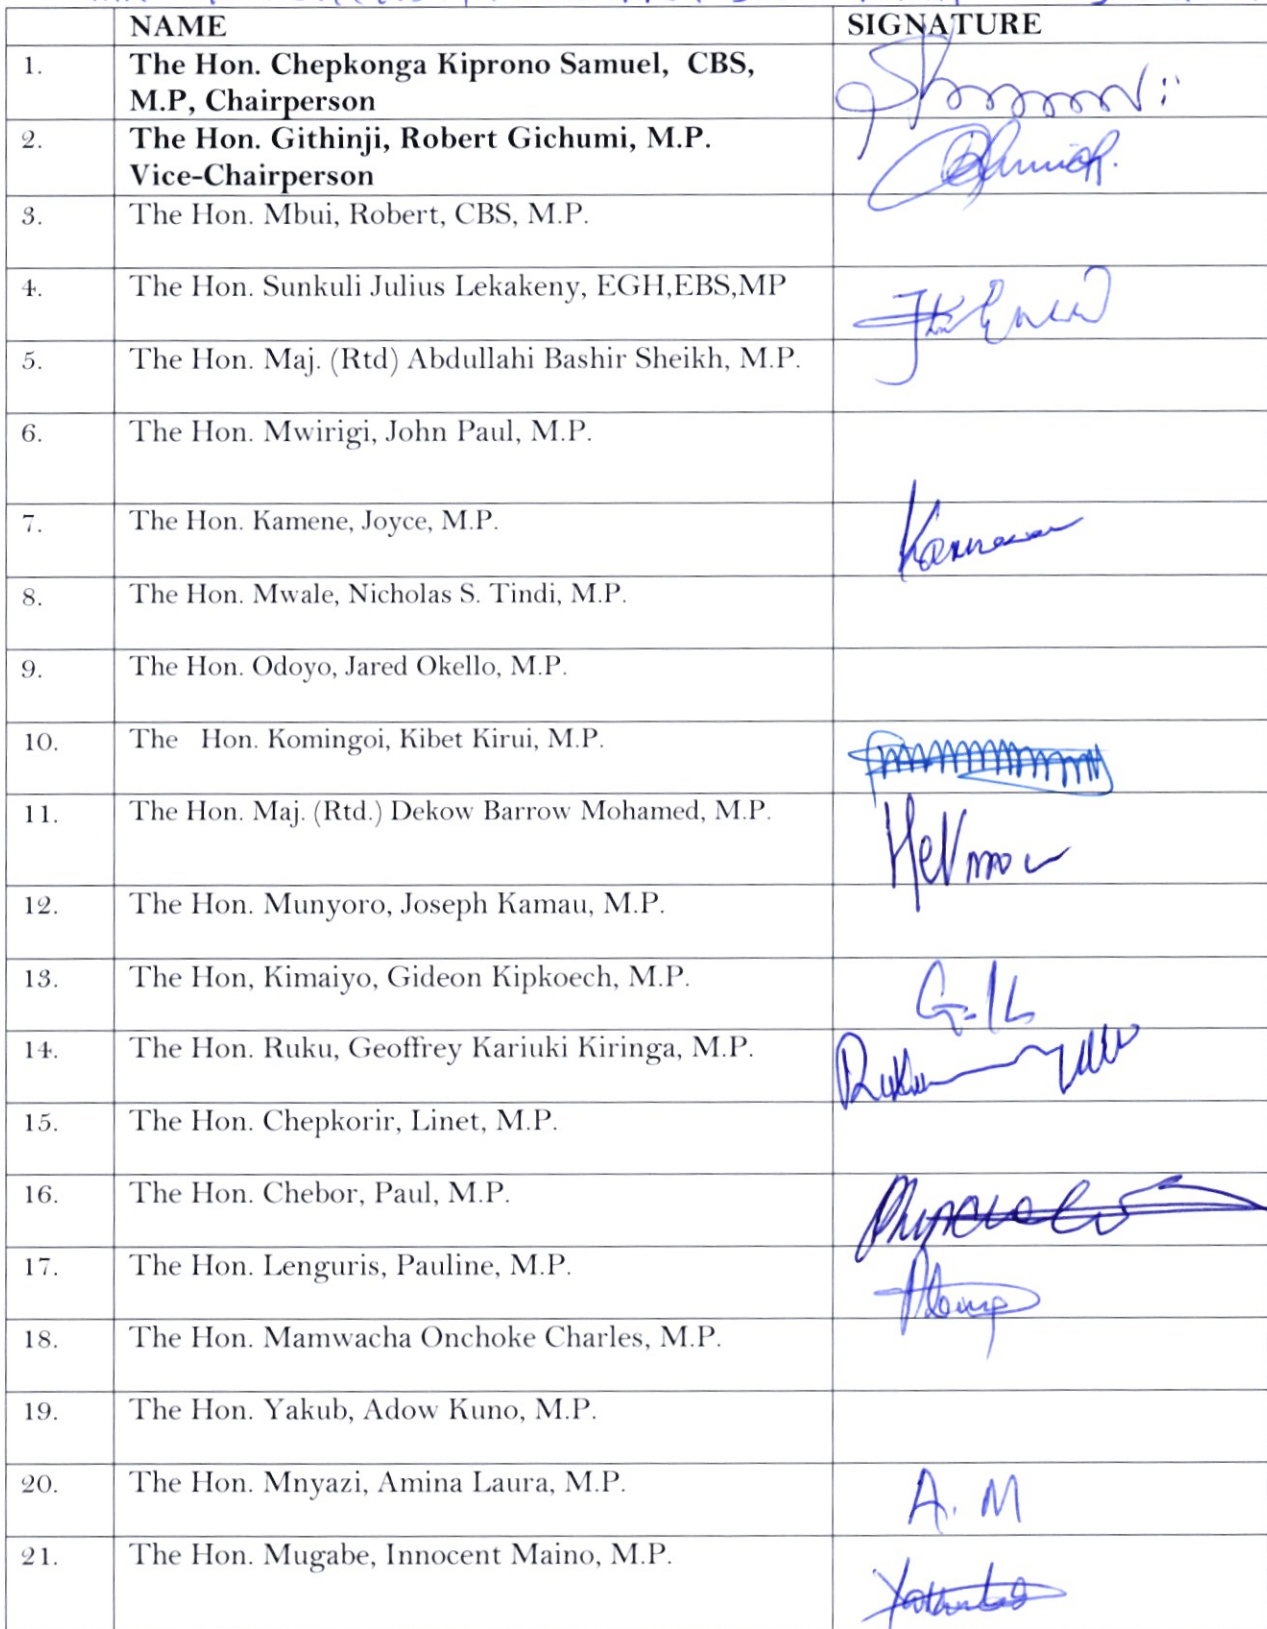 NAME SIGNATURE
1. The Hon. Chepkonga Kiprono Samuel, CBS,
M.P, Chairperson
2. The Hon. Githinji, Robert Gichumi, M.P.
Vice-Chairperson
3. The Hon. Mbui, Robert, CBS, M.P.
4. The Hon. Sunkuli Julius Lekakeny, EGH,EBS,MP
5. The Hon. Maj. (Rtd) Abdullahi Bashir Sheikh, M.P.
6. The Hon. Mwirigi, John Paul, M.P.
7. The Hon. Kamene, Joyce, M.P.
8. The Hon. Mwale, Nicholas S. Tindi, M.P.
9. The Hon. Odoyo, Jared Okello, M.P.
10. The Hon. Komingoi, Kibet Kirui, M.P.
11. The Hon. Maj. (Rtd.) Dekow Barrow Mohamed, M.P.
12. The Hon. Munyoro, Joseph Kamau, M.P.
13. The Hon, Kimaiyo, Gideon Kipkoech, M.P.
14. The Hon. Ruku, Geoffrey Kariuki Kiringa, M.P.
15. The Hon. Chepkorir, Linet, M.P.
16. The Hon. Chebor, Paul, M.P.
17. The Hon. Lenguris, Pauline, M.P.
18. The Hon. Mamwacha Onchoke Charles, M.P.
19. The Hon. Yakub, Adow Kuno, M.P.
20. The Hon. Mnyazi, Amina Laura, M.P. A. M
21. The Hon. Mugabe, Innocent Maino, M.P.